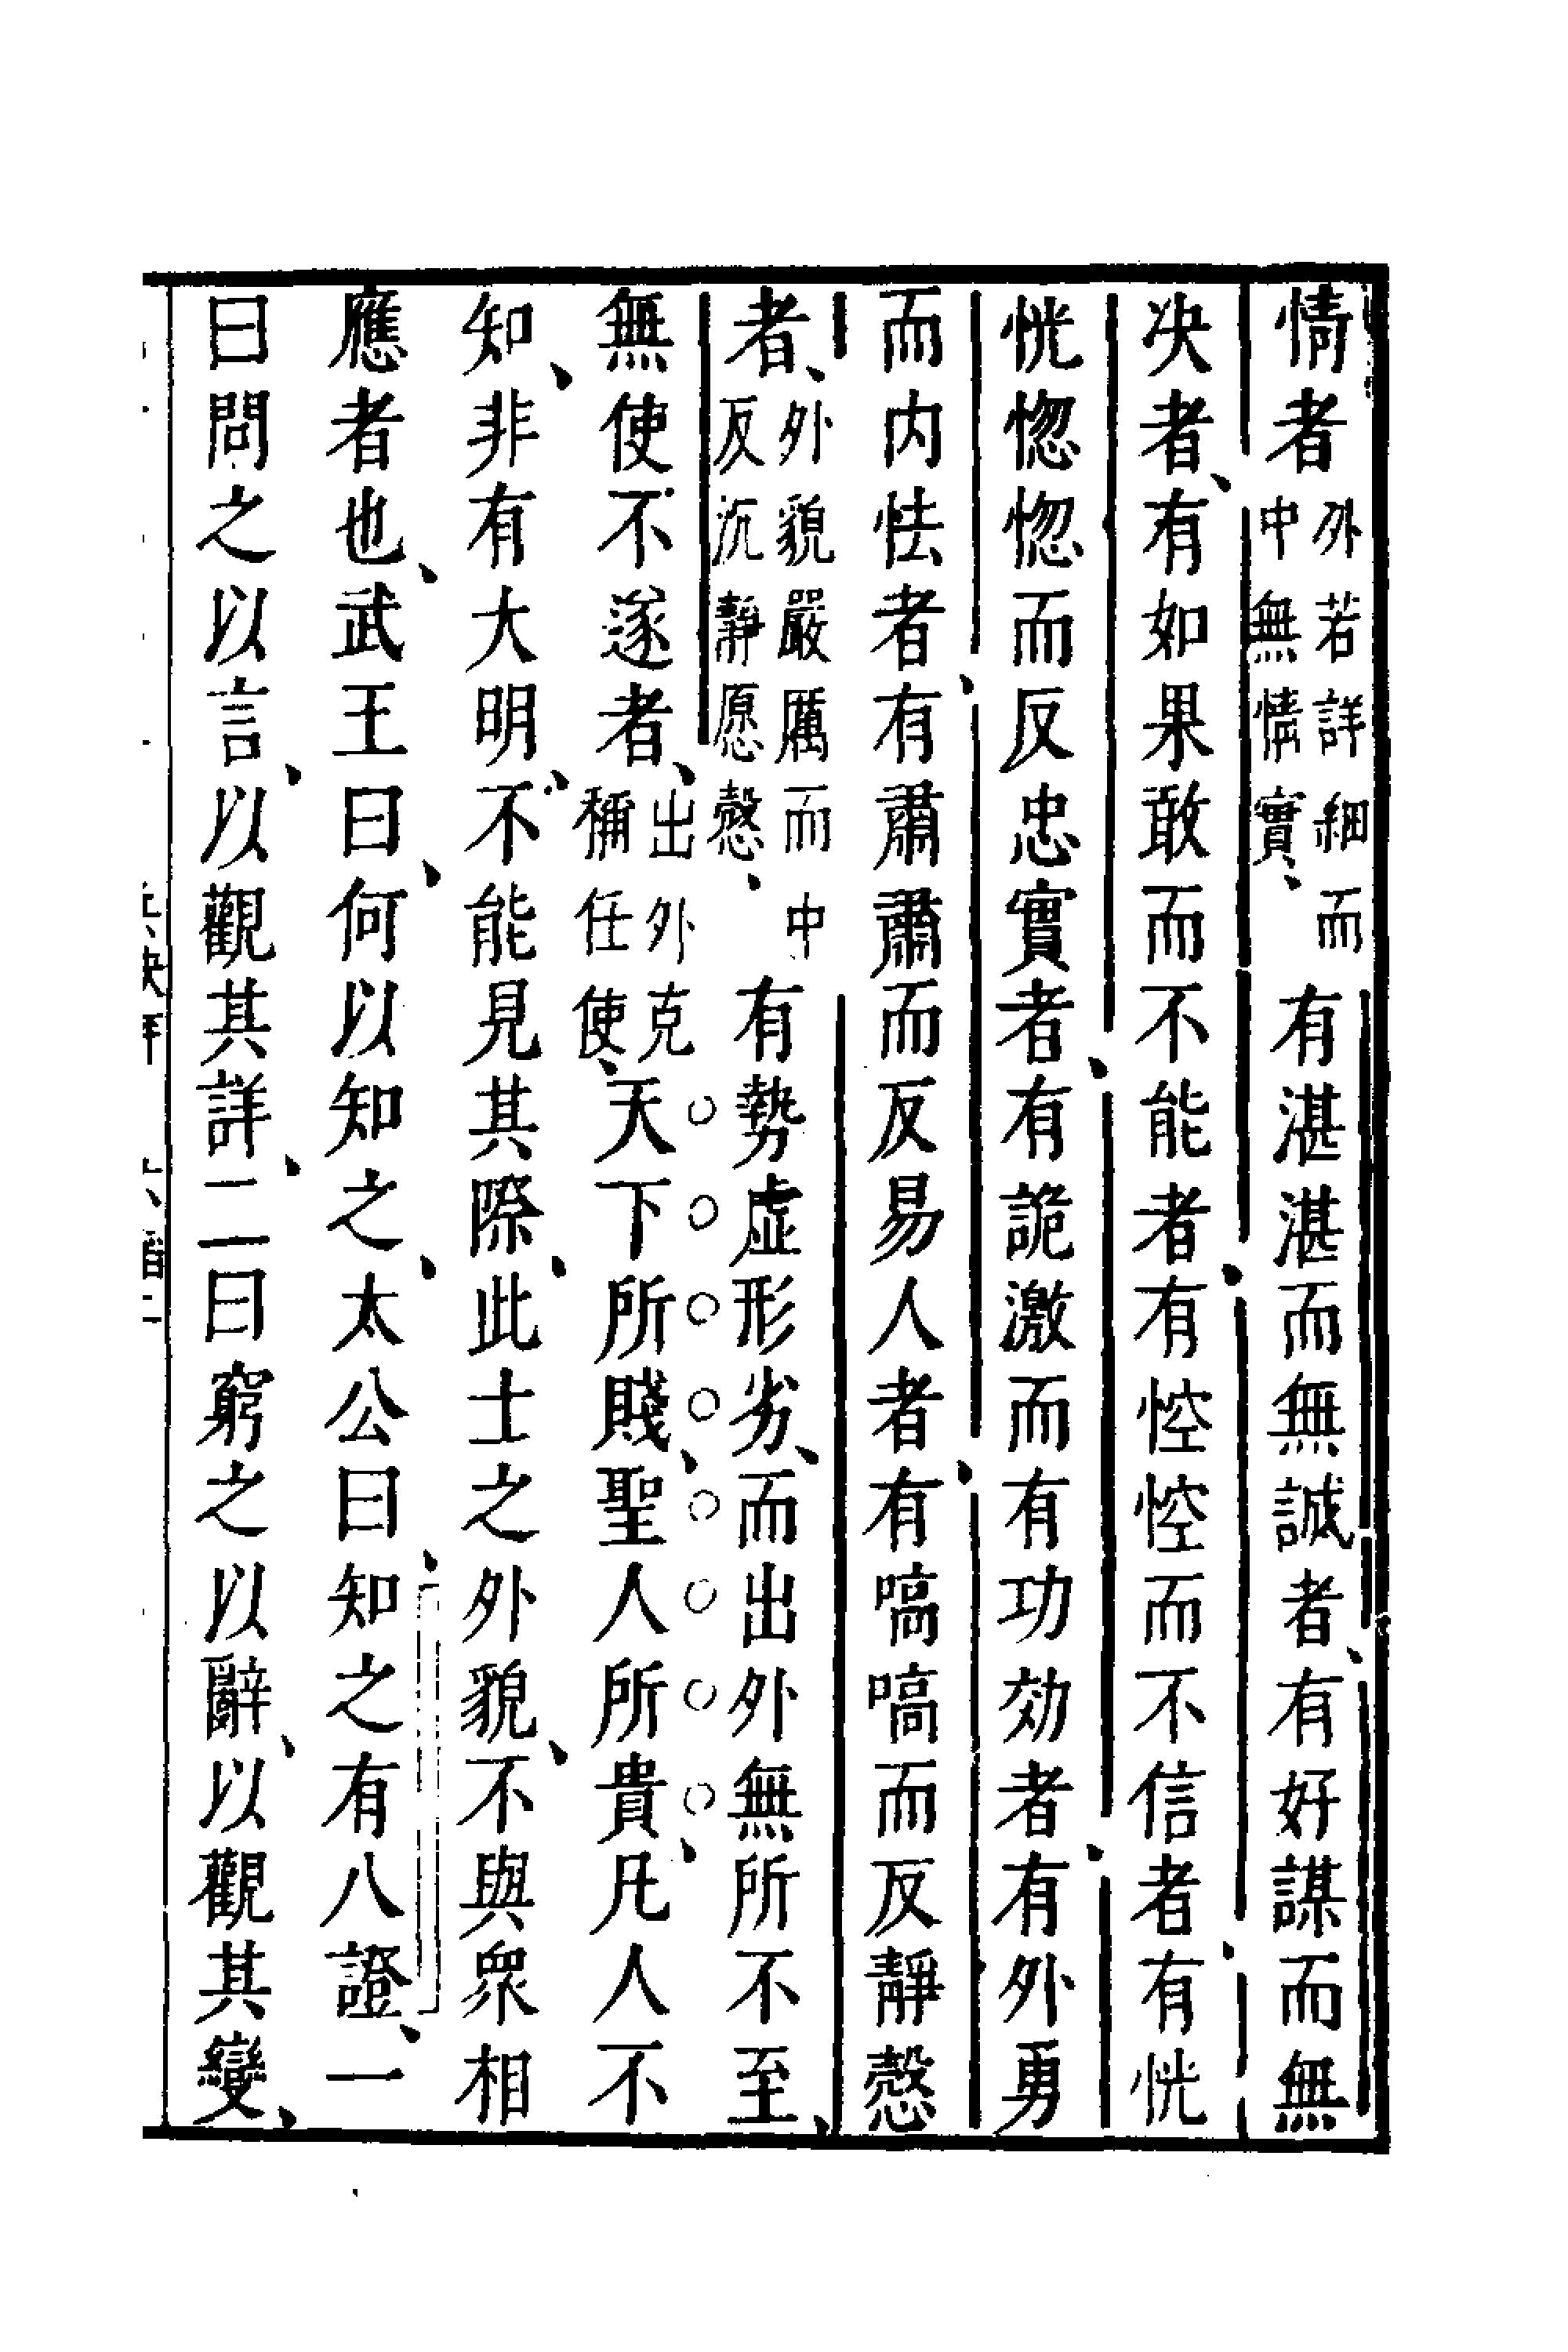 情者外若詳細而中無情實、有湛湛而無誠者、有好謀而無
决者、有如果敢而不能者、有悾悾而不信者、有恍
恍惚惚而反忠實者、有詭激而有功効者、有外勇
而内怯者、有肅肅而反易人者、有嗃嗃而反靜慤
者、外貌嚴厲而中反沉靜愿慤、有勢虛形劣、而出外無所不至、
無使不遂者、出外克稱任使、天下所賤、聖人所貴、凡人不
知、非有大明、不能見其際、此士之外貌、不與衆相
應者也、武王曰、何以知之、太公曰、知之有八證、一
曰問之以言、以觀其詳、二曰窮之以辭、以觀其變、